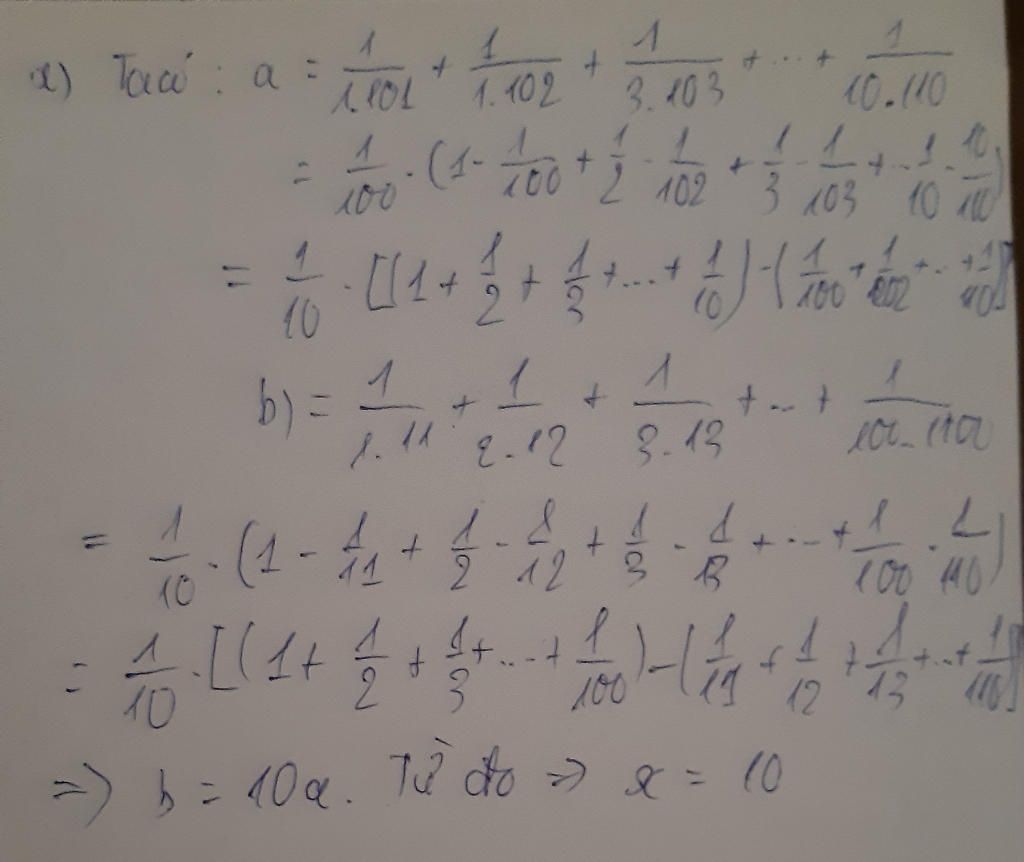 x) Ta có : a = 1/1.101 + 1/1.102 + 1/3.103 + ... + 1/10.110
= 1/100 . (1 - 1/100 + 1/2 - 1/102 + 1/3 - 1/103 + .. 1/10 - 10/110)
= 1/10 . [(1 + 1/2 + 1/3 + ... + 1/10) - (1/100 + 1/102 + .. + 1/110)]
b) = 1/1.11 + 1/2.12 + 1/3.13 + ... + 1/100.1100
= 1/10 . (1 - 1/11 + 1/2 - 1/12 + 1/3 - 1/13 + ... + 1/100 . 1/110)
= 1/10 . [(1 + 1/2 + 1/3 + ... + 1/100) - (1/11 + 1/12 + 1/13 + ... + 1/110)]
=> b = 10a. Từ đo => x = 10